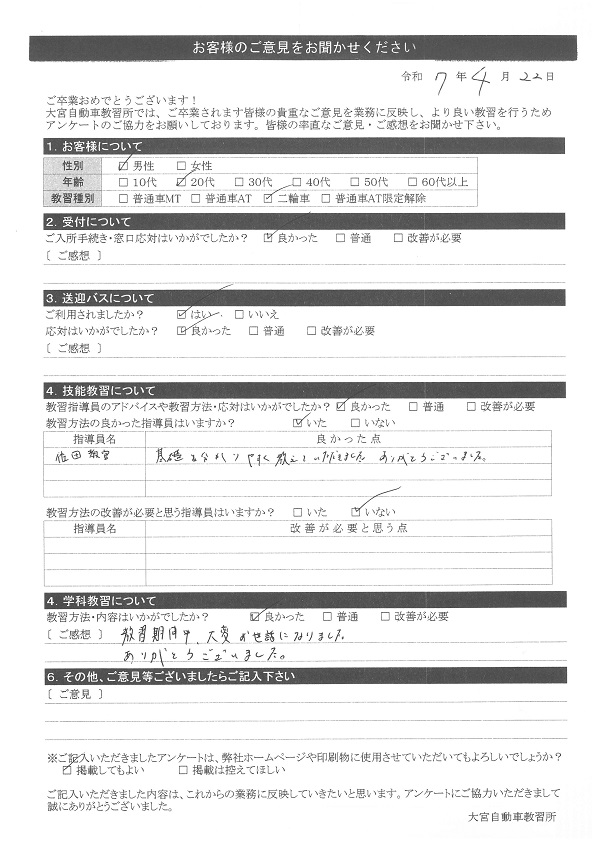 お客様のご意見をお聞かせください
令和 7 年 4 月 22 日
ご卒業おめでとうございます！
大宮自動車教習所では、ご卒業されます皆様の貴重なご意見を業務に反映し、より良い教習を行うため
アンケートのご協力をお願いしております。皆様の率直なご意見・ご感想をお聞かせ下さい。
1. お客様について
性別 ☑ 男性 □ 女性
年齢 □ 10代 ☑ 20代 □ 30代 □ 40代 □ 50代 □ 60代以上
教習種別 □ 普通車MT □ 普通車AT ☑ 二輪車 □ 普通車AT限定解除
2. 受付について
ご入所手続き・窓口応対はいかがでしたか？ ☑ 良かった □ 普通 □ 改善が必要
〔 ご感想 〕
3. 送迎バスについて
ご利用されましたか？ ☑ はい □ いいえ
応対はいかがでしたか？ ☑ 良かった □ 普通 □ 改善が必要
〔 ご感想 〕
4. 技能教習について
教習指導員のアドバイスや教習方法・応対はいかがでしたか？ ☑ 良かった □ 普通 □ 改善が必要
教習方法の良かった指導員はいますか？ ☑ いた □ いない
指導員名 良かった点
佐田教官 基礎を分かりやすく教えていただきました ありがとうございました。
教習方法の改善が必要と思う指導員はいますか？ □ いた ☑ いない
指導員名 改善が必要と思う点
4. 学科教習について
教習方法・内容はいかがでしたか？ ☑ 良かった □ 普通 □ 改善が必要
〔 ご感想 〕 教習期間中、大変お世話になりました。
ありがとうございました。
6. その他、ご意見等ございましたらご記入下さい
〔 ご意見 〕
※ご記入いただきましたアンケートは、弊社ホームページや印刷物に使用させていただいてもよろしいでしょうか？
☑ 掲載してもよい □ 掲載は控えてほしい
ご記入いただきました内容は、これからの業務に反映していきたいと思います。アンケートにご協力いただきまして
誠にありがとうございました。
大宮自動車教習所